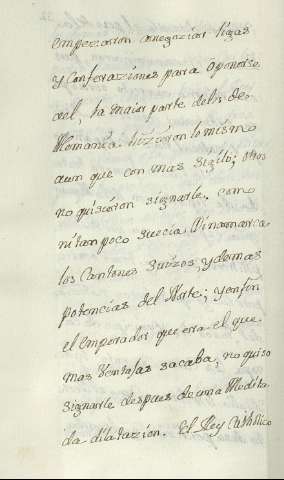 empezaron anegoziar ligas
y Conferaziones para oponerse
aol, la maior parte delos de
Alemania hizieron lo mismo
aun que con mas sigilo; otros
no quisieron signarle. como
ni tan poco Suecia Dinamarca
los Cantones Suizos, y demas
potencias del Norte; y en fin
el Emperador que era el que
mas Ventajas sacaba, no quiso
signarle despues de una Medita
da dilatazion. El Rey Catholico